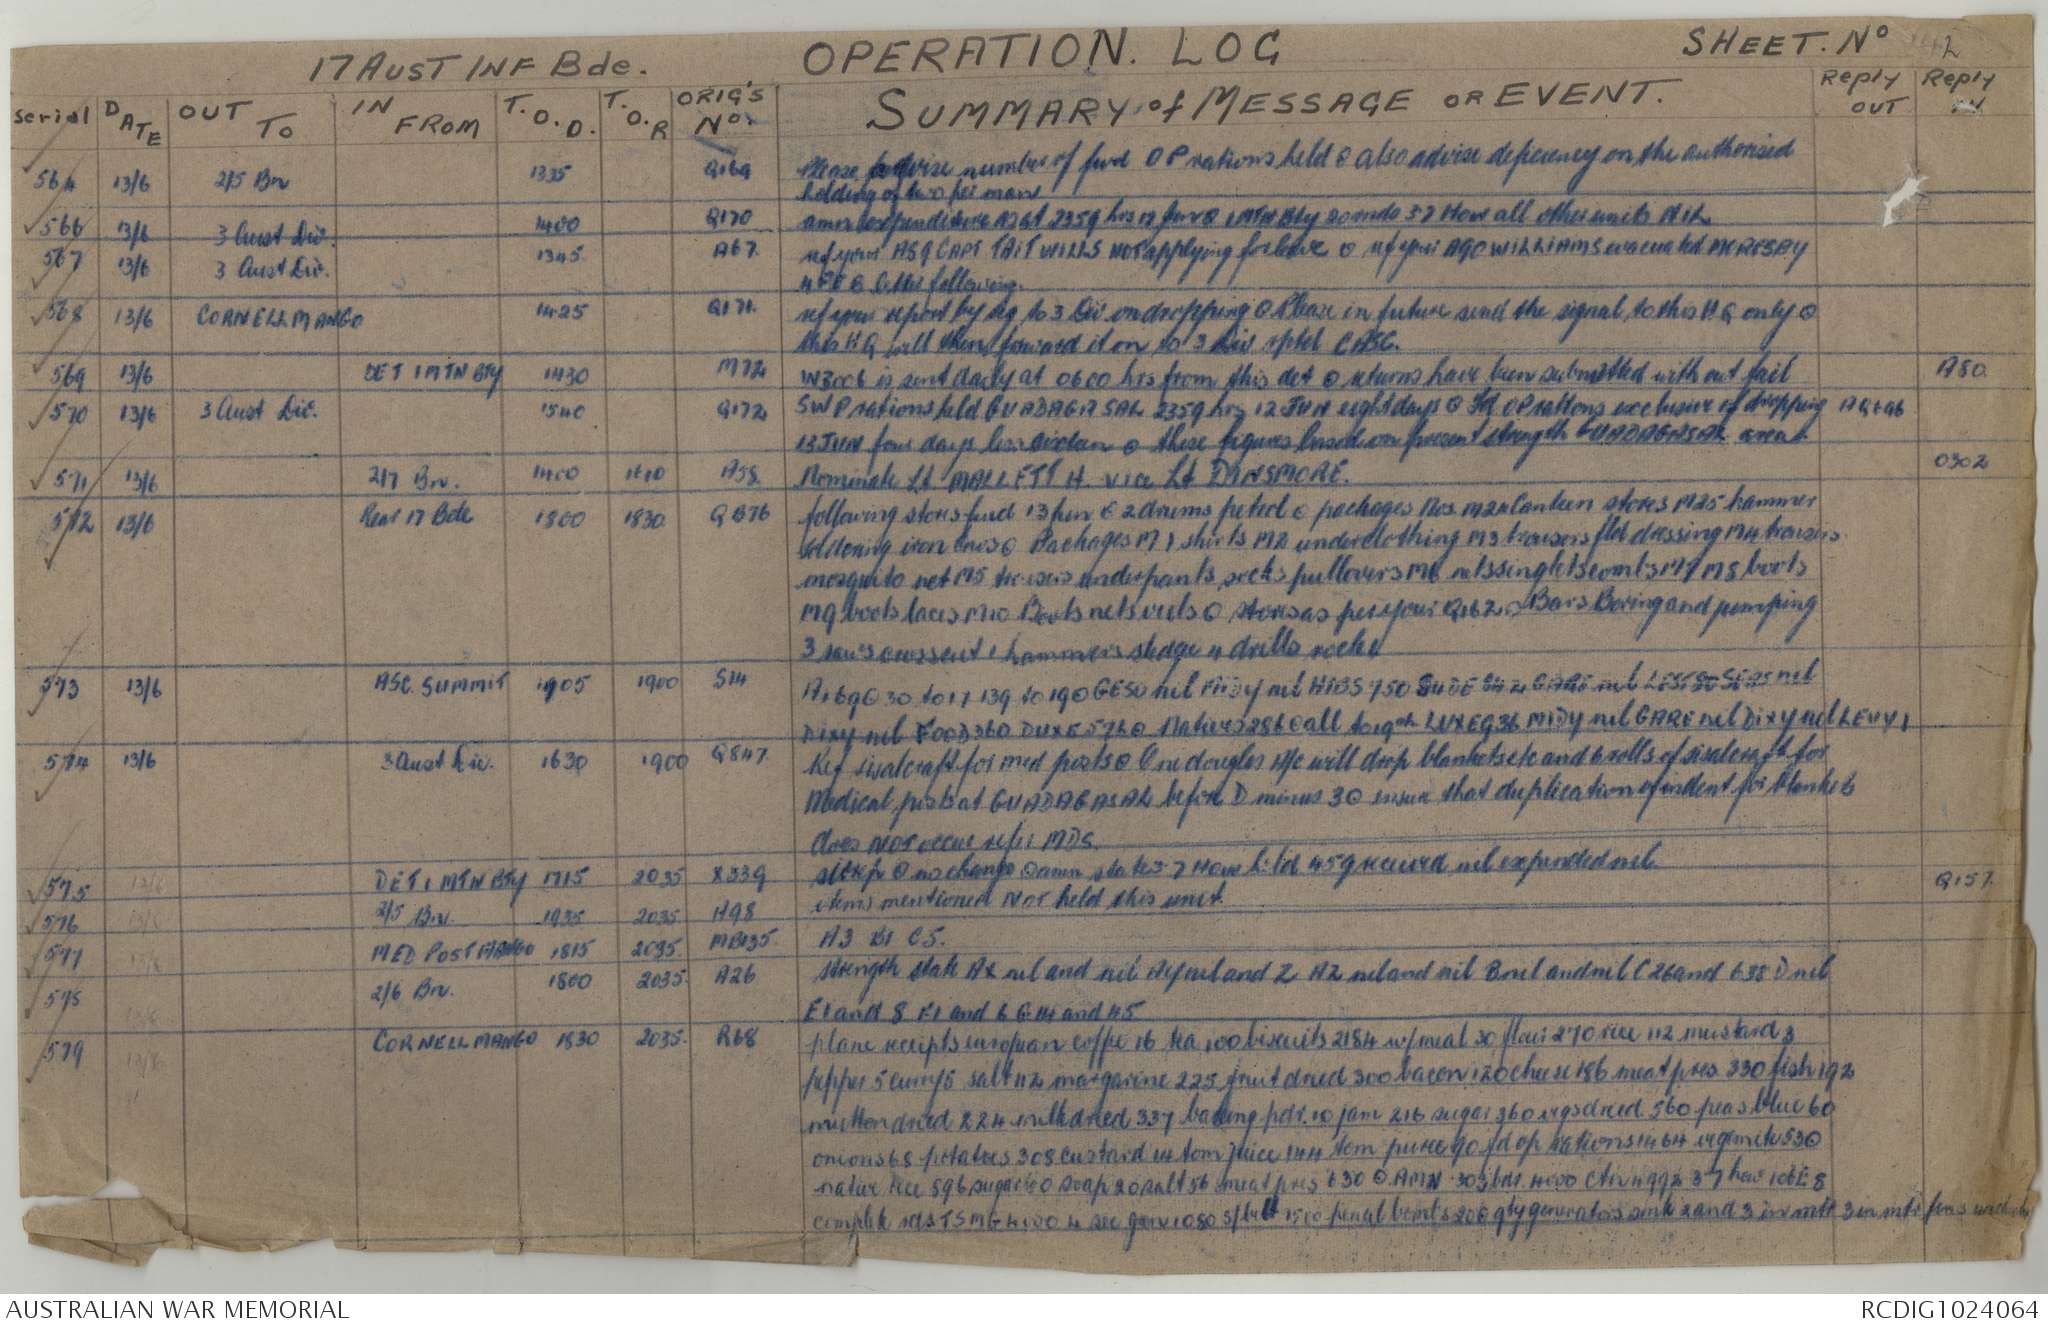 17 AUST INF Bde. OPERATION. LOG SHEET. No 42
Serial DATE OUT TO IN FROM T.O.D. T.O.R ORIG'S No. SUMMARY of MESSAGE OR EVENT. Reply OUT Reply IN
564 13/6 2/5 Bn 1335 Q169 Please advise number of fwd OP rations held @ also advise deficiency on the authorised
holding of two per man
566 13/6 3 Aust Div. 1400 Q170 amn expenditure as at 2359 hrs 12 Jun @ 1 MTN Bty 20 rnds 3.7 How all other units NIL
567 13/6 3 Aust Div. 1345 A67. ref your A59 CAPT TAIT WILLS NOT applying for leave @ ref your A90 WILLIAMS evacuated
letter following.
568 13/6 CORNELL MANGO 1425 Q171. ref your report by sig to 3 Div on dropping @ Please in future send the signal to this HQ only @
this HQ will then forward it on to 3 Div rptd CASC.
569 13/6 DET 1 MTN BTY 1430 M72 W3006 is sent daily at 0600 hrs from this det @ returns have been submitted with out fail A80.
570 13/6 3 Aust Div. 1540 Q172 SWP rations held GUADAGASAL 2359 hrs 12 JUN eight days @ fd OP rations exclusive of dropping AQ696
13 JUN four days less @ these figures based on present strength GUADAGASAL area.
571 13/6 2/7 Bn. 1400 1610 A58. Nominate Lt MALLETT H. vice Lt DINSMORE. 0302
572 13/6 Rear 17 Bde 1800 1830 QB76 following stores fwd 13 Jun @ 2 drums petrol @ packages Nos. M24 Canteen stores M25 hammer
soldering iron @ Packages M1 shirts M2 underclothing M3 trousers flet dressing M4 trousers
mosquito net M5 trousers underpants, socks pullovers M6 nets singlets combs M7 M8 boots
M9 boots laces M10 Boots nets @ stores as per your Q162 @ Bars Boring and pumping
3 saws crosscut 1 hammers sledge 4 drills rock
573 13/6 ASC. SUMMIT 1905 1900 S14 A169 @ 30 to 17 139 to 190 GESU nil MIDY nil HIBS 750 GARE nil nil
DIXY nil FOOD 360 DUXE 5760 Natives 286 @ all to 19th LUXE 936 MIDY nil GARE nil DIXY nil LEVY 1
574 13/6 3 Aust Div. 1630 1900 Q847 Ref sisalcraft for med posts @ One douglas a/c will drop blankets etc and 6 rolls of sisalcraft for
Medical posts at GUADAGASAL before D minus 3 @ ensure that duplication of indent for blankets
does NOT occur refer MDS.
575 13/6 DET 1 MTN BTY 1715 2035 X339 sitrep @ no change @ amn state 3.7 How held 459 received nil expended nil.
576 13/6 2/5 Bn. 1935 2035 A98 items mentioned NOT held this unit. Q157.
577 13/6 MED POST MANGO 1815 2035. MB135. A3 B1 C5.
578 13/6 2/6 Bn. 1800 2035. A26 strength state AX nil and nil AY nil and 2 AZ nil and nil B nil and nil C 26 and 638 D nil
E1 and 8 F1 and 6 G 14 and 45
579 13/6 CORNELL MANGO 1830 2035. R68 plane receipts european coffee 16 tea 100 biscuits 2184 w/meal 30 flour 270 rice 112 mustard 3
pepper 5 curry 5 salt 112 margarine 225 fruit dried 300 bacon 120 cheese 186 meat pres 330 fish 192
mutton dried 224 milk dried 337 baking pdr. 10 jam 216 sugar 360 vegs dried 560 peas blue 60
onions 68 potatoes 308 custard 14 tom juice 144 tom puree 90 fd op rations 1464 vegemite 530
native rice 596 sugar soap 20 salt 56 meat pres 630 @ AMN 3.7 how 106 E 8
complete TSMG 4 sec gren 1080 200 qty generators 2 and 3 3 in mtr
AUSTRALIAN WAR MEMORIAL RCDIG1024064